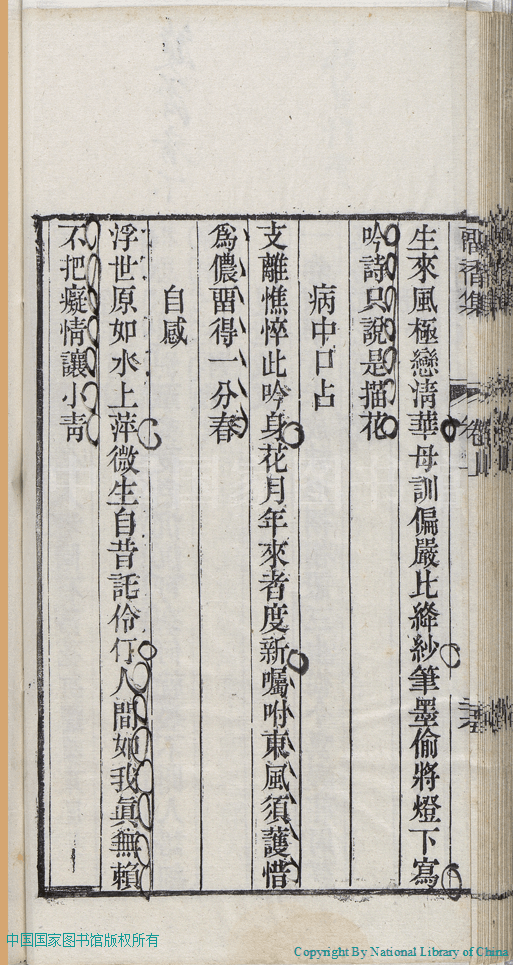 生來風極戀清華母訓偏嚴比絳紗筆墨偷將燈下寫
吟詩只說是描花
病中口占
支離憔悴此吟身花月年來者度新囑咐東風須護惜
為儂畱得一分春
自感
浮世原如水上萍微生自昔託伶仃人間如我眞無賴
不把癡情讓小青
中国国家图书馆版权所有
Copyright By National Library of China